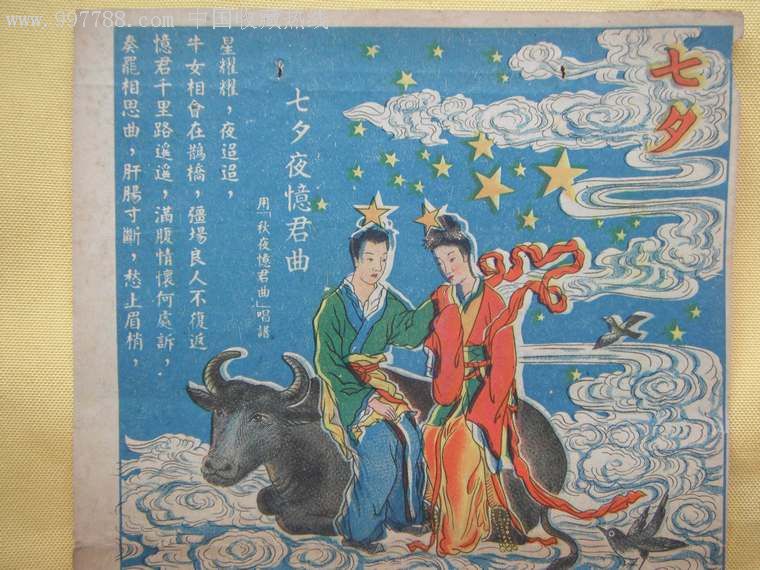 www.997788.com 中国收藏热线
七夕
七夕夜憶君曲
用「秋夜憶君曲」唱譜
星耀耀，夜迢迢，
牛女相會在鵲橋，疆場良人不復返
憶君千里路遥遥，滿腹情懷何處訴，
奏罷相思曲，肝腸寸斷，愁上眉梢，